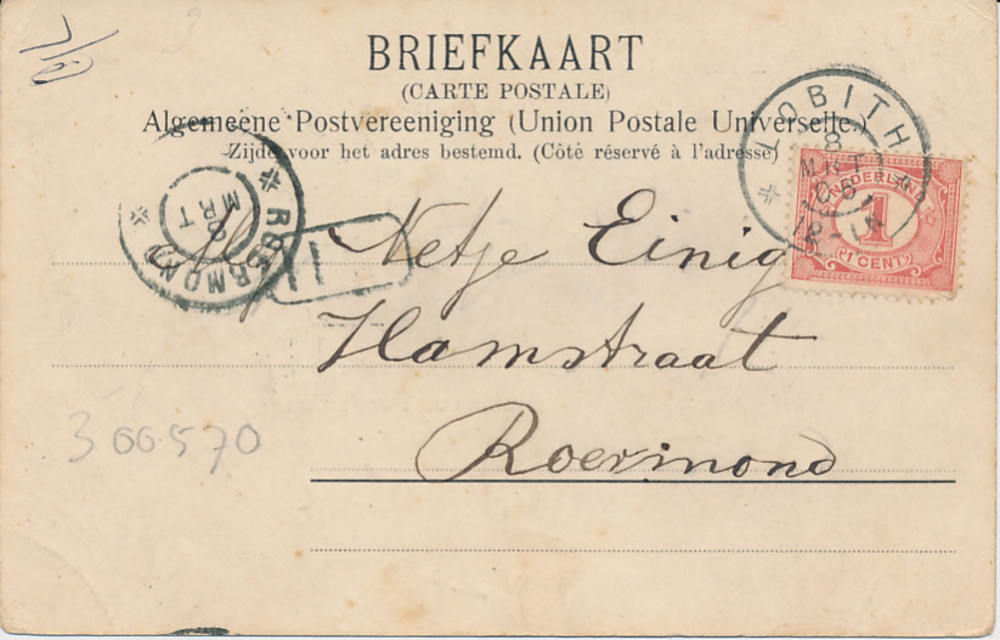 BRIEFKAART
(CARTE POSTALE)
Algemeene Postvereeniging (Union Postale Universelle.)
Zijde voor het adres bestemd. (Côté réservé à l'adresse)
LOBITH
8
MRT
06
NEDERLAND
1
1 CENT
ROERMOND
MRT
1
Netje Einig
Hamstraat
Roermond
300570